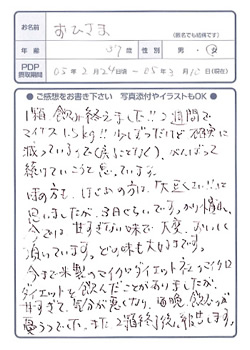 お名前
おひさま
(匿名でも結構です)
年齢 57才 性別 男・女
PDP
摂取期間 05年2月24日頃~05年3月10日(現在)
●ご感想をお書き下さい 写真添付やイラストもOK●
1箱 飲み終えました!! 2週間で
マイナス1.5kg!! 少しずつだけど確実に
減っているので(戻らなくて)、がんばって
続けていこうと思っています。
味の方も、はじめの方は、"大豆くさい!!"と
思いましたが、3日ぐらいですっかり慣れ、
今では 甘すぎない味で大変おいしく
頂いています。どの味も大好きです。
今まで米製のマイクロダイエット
ダイエットを飲んだことがありましたが、
甘すぎて、気分が悪くなり、毎晩飲むのが
憂うつでした。また2箱終了後、報告します。